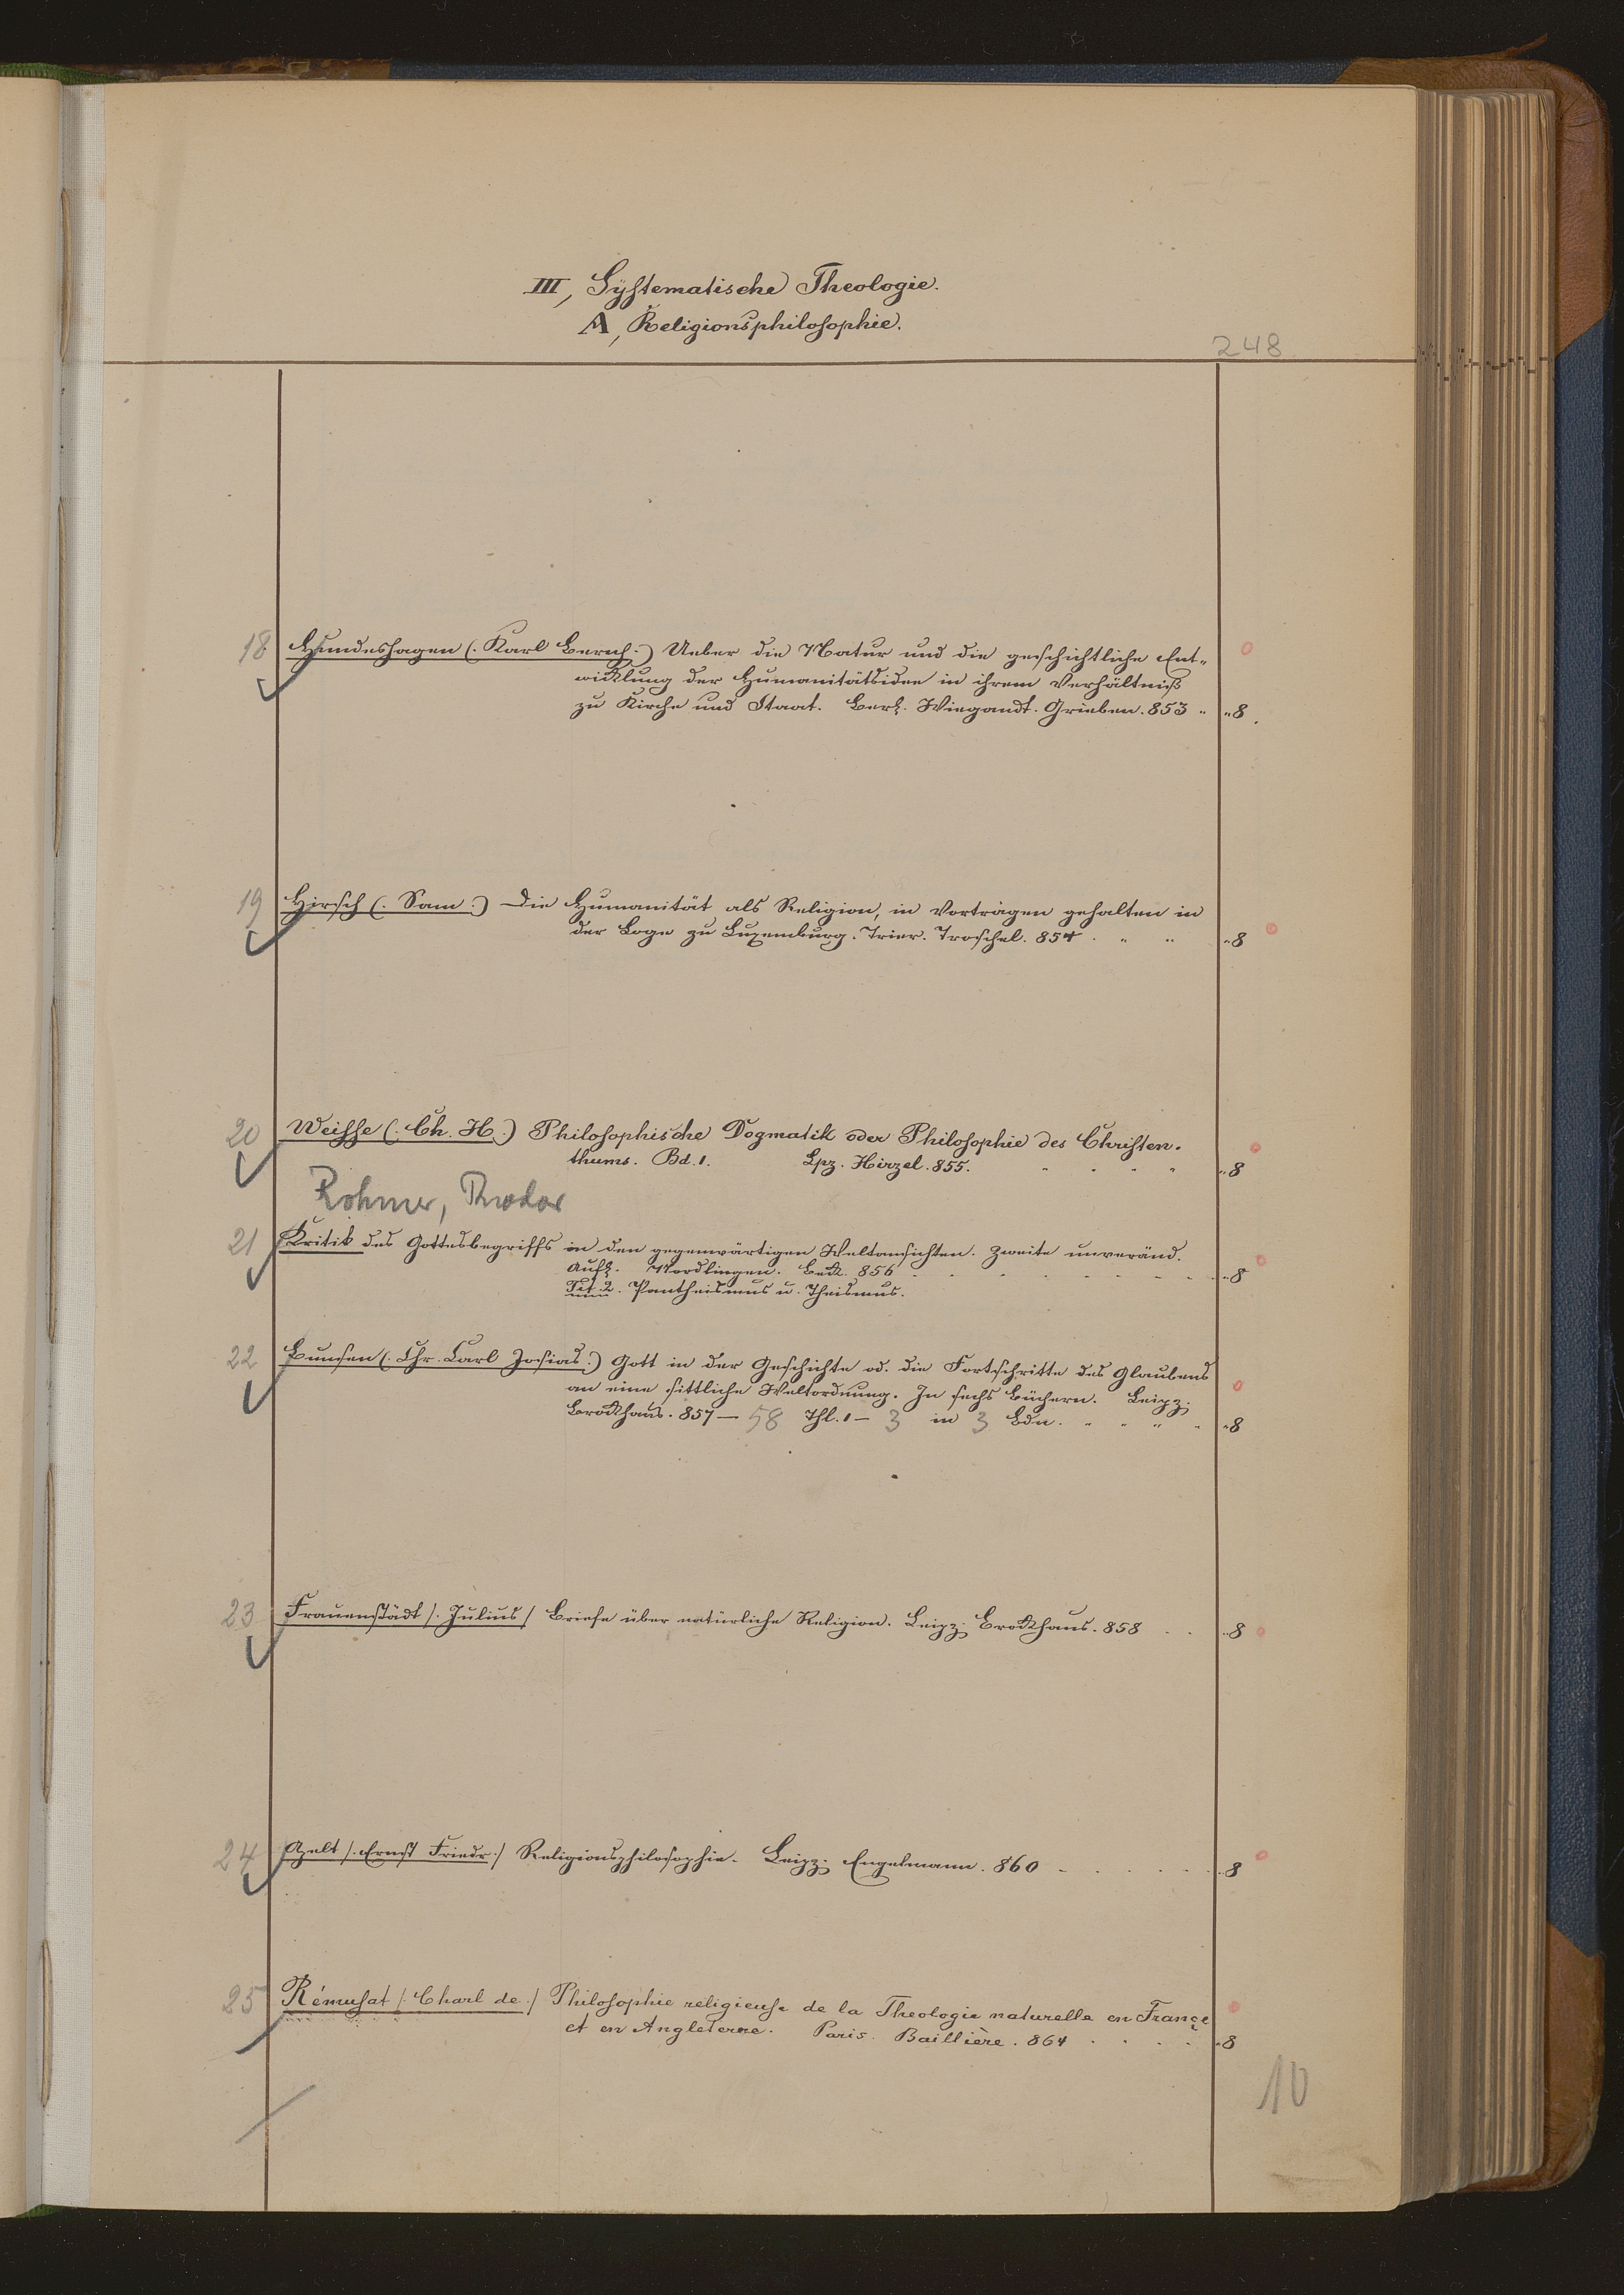 III, Systematische Theologie.
A, Religionsphilosophie.
248
18 Hundeshagen (. Karl Bernh.) Ueber die Natur und die geschichtliche Ent-
wicklung der Humanitätsidee in ihrem Verhältniß
zu Kirche und Staat. Berl. Wiegandt. Grieben. 853 " "8.
19 Hirsch (. Sam.) Die Humanität als Religion, in Vorträgen gehalten in
der Loge zu Luxemburg. Trier. Troschel. 854 . " " "8
20 Weisse (. Ch. H.) Philosophische Dogmatik oder Philosophie des Christen-
thums. Bd. 1. Lpz. Hirzel. 855. " " " " "8
Rohmer, Theodor
21 Kritik des Gottesbegriffs in den gegenwärtigen Weltansichten. Zweite unveränd.
Aufl. Nördlingen. Beck. 856 . . . . . . . . "8
Tit. 2. Pantheismus u. Theismus.
22 Bunsen (. Chr. Carl Josias.) Gott in der Geschichte od. die Fortschritte des Glaubens
an eine sittliche Weltordnung. In sechs Büchern. Leipz.
Brockhaus. 857 — 58 Thl. 1 — 3 in 3 Bdn. " " " " "8
23 Frauenstädt /. Julius / Briefe über natürliche Religion. Leipz. Brockhaus. 858 . . "8
24 Apelt /. Ernst Friedr. / Religionsphilosophie. Leipz. Engelmann. 860 - . . . . . "8
25 Rémusat /. Charl de / Philosophie religieuse de la Theologie naturelle en France
et en Angleterre. Paris. Baillière. 864 . . . . "8
10